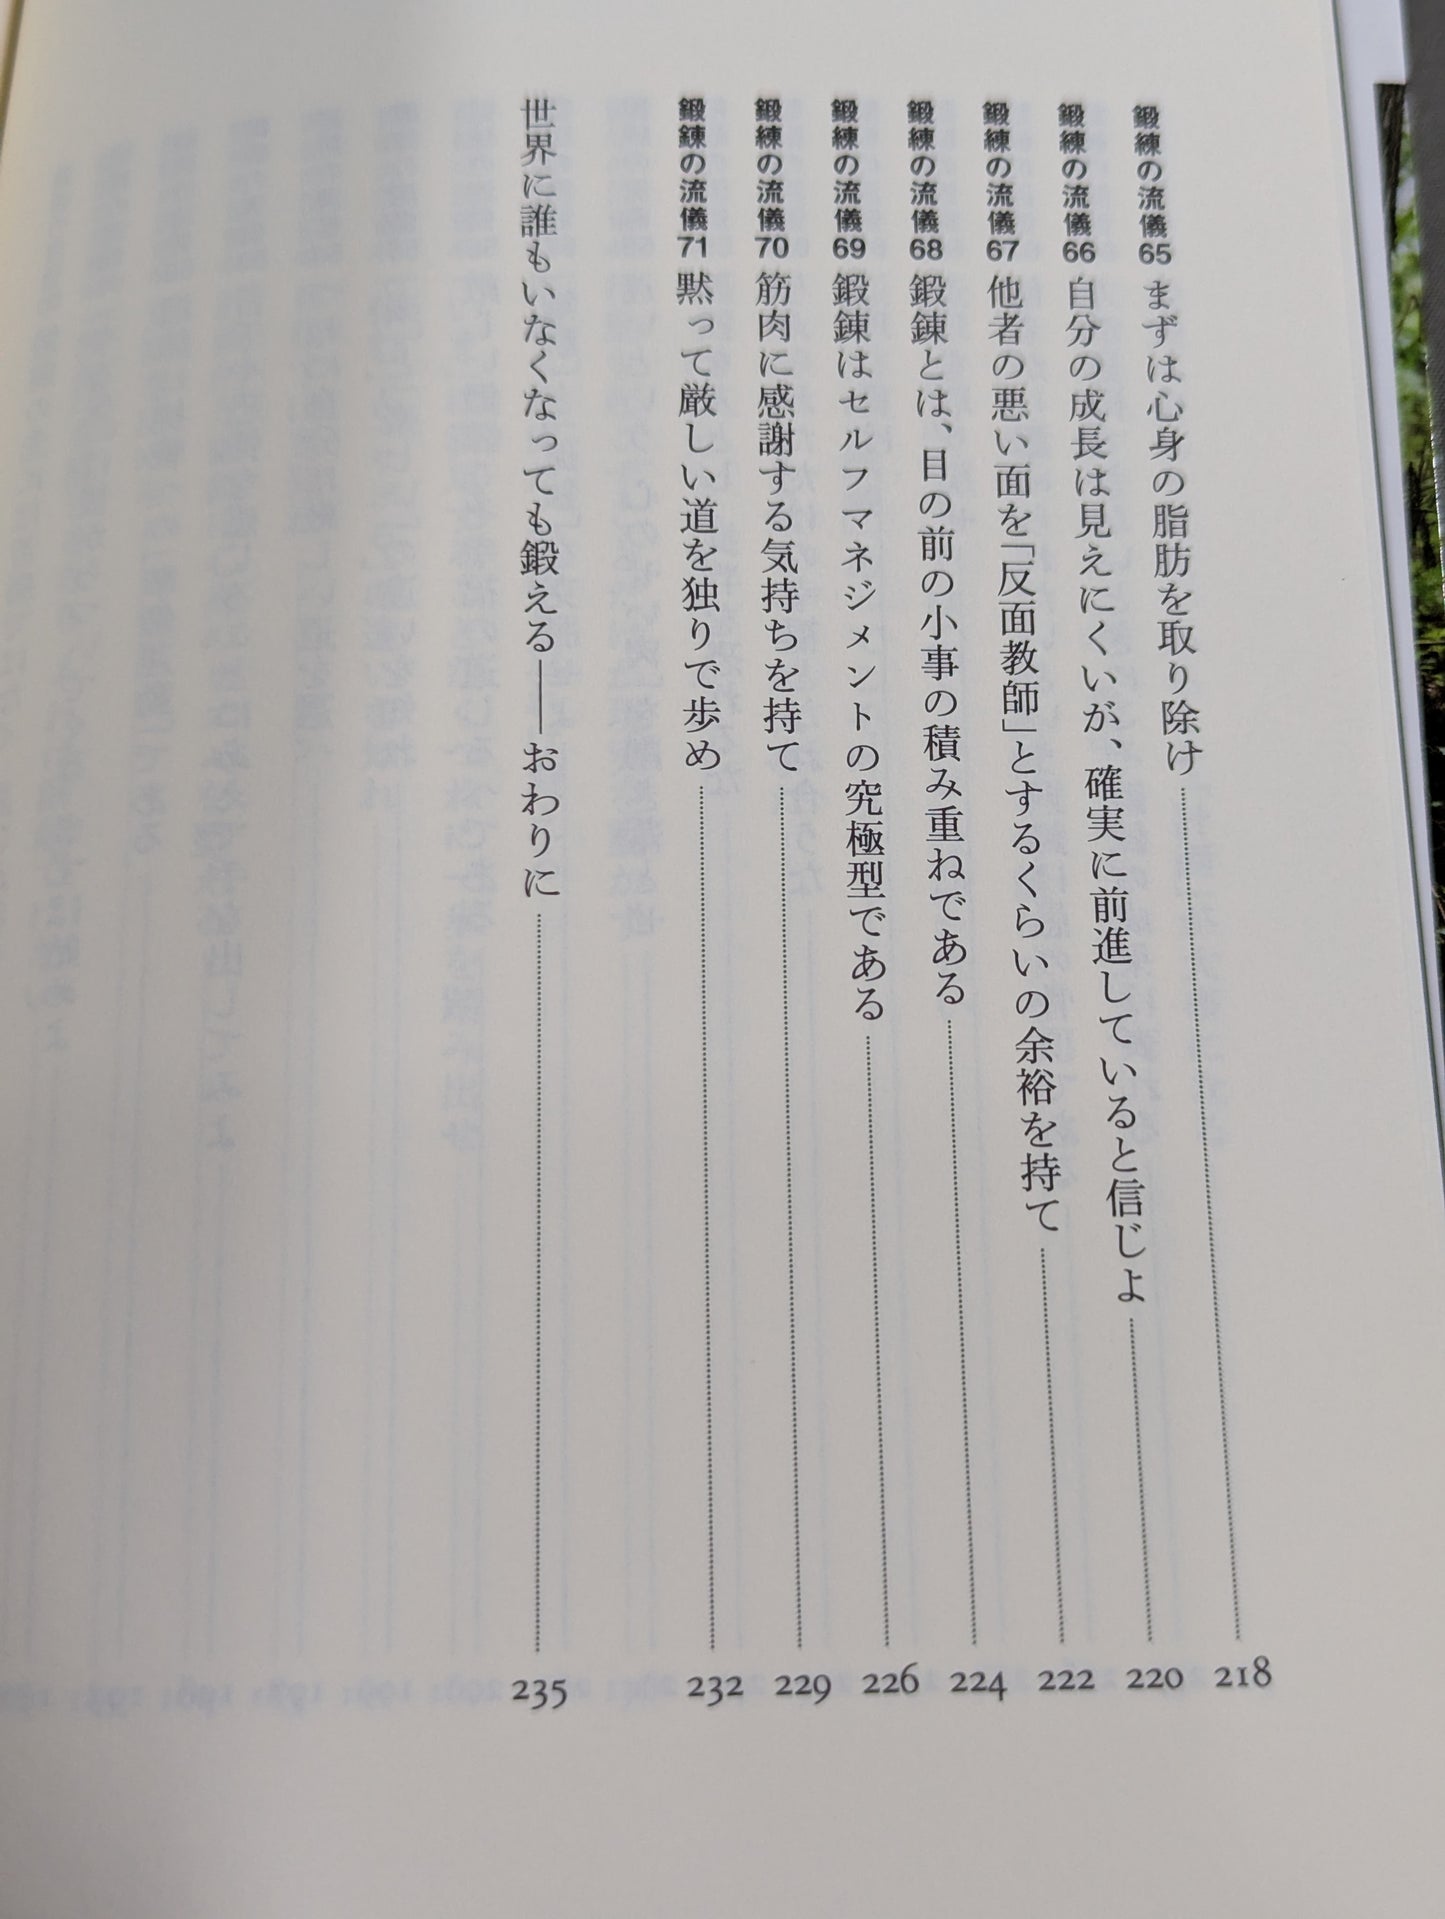 鍛錬の流儀65 まずは心身の脂肪を取り除け 218
鍛錬の流儀66 自分の成長は見えにくいが、確実に前進していると信じよ 220
鍛錬の流儀67 他者の悪い面を「反面教師」とするくらいの余裕を持て 222
鍛錬の流儀68 鍛錬とは、目の前の小事の積み重ねである 224
鍛錬の流儀69 鍛錬はセルフマネジメントの究極型である 226
鍛錬の流儀70 筋肉に感謝する気持ちを持て 229
鍛錬の流儀71 黙って厳しい道を独りで歩め 232
世界に誰もいなくなっても鍛える――おわりに 235